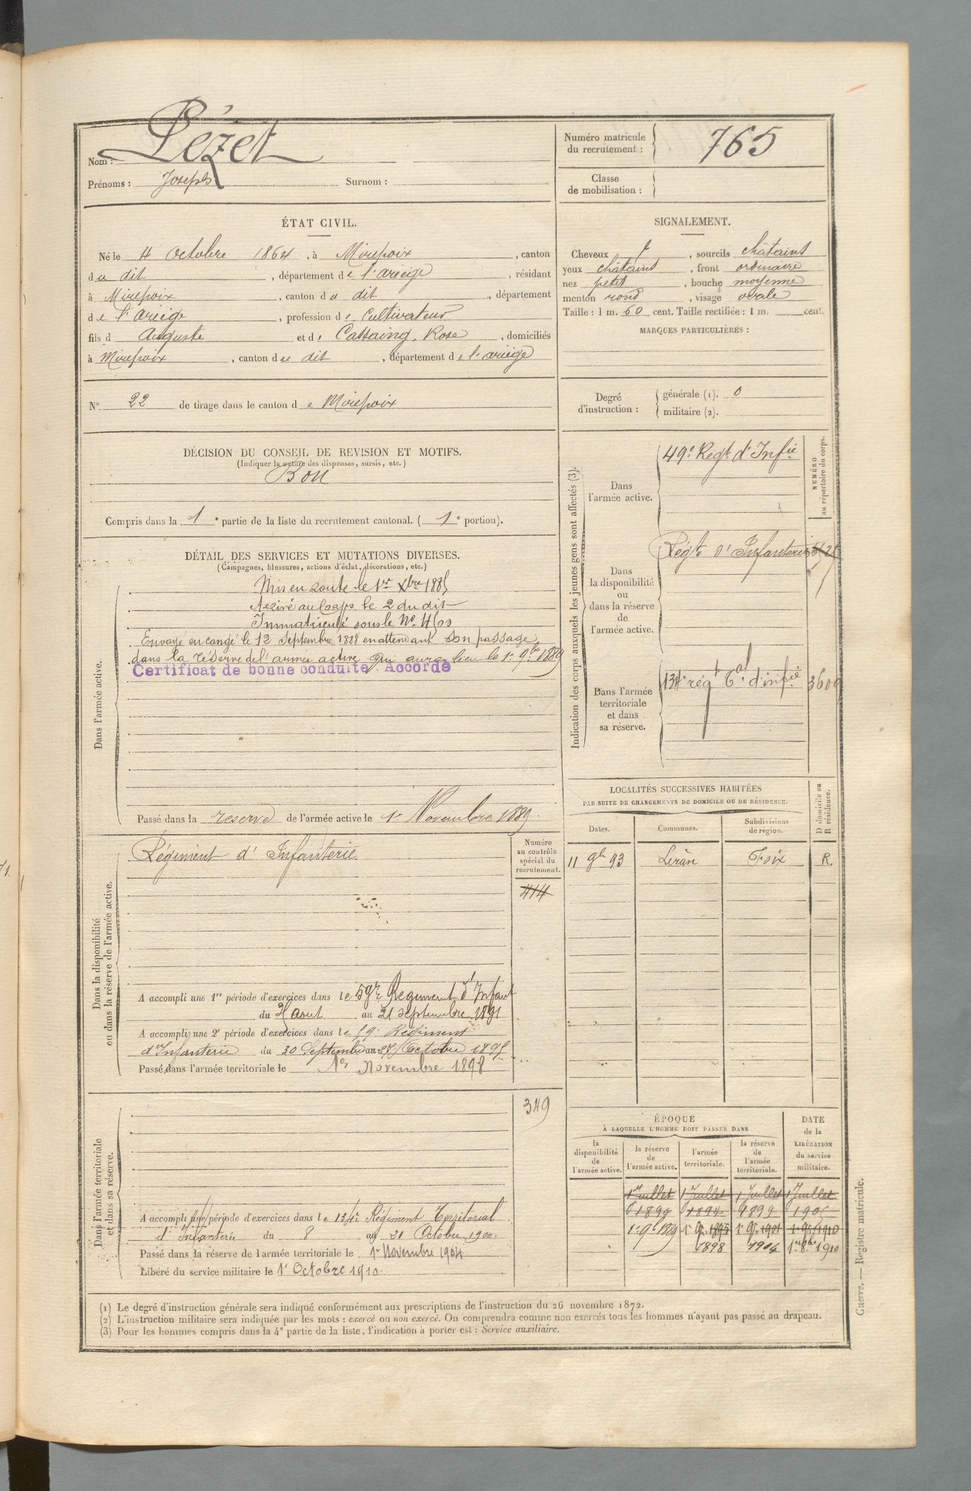 Nom : Pézet
Prénoms : Joseph Surnom :
Numéro matricule du recrutement : 765
Classe de mobilisation :
ÉTAT CIVIL.
Né le 4 octobre 1864, à Mirepoix, canton
du dit, département de l'ariège, résidant
à Mirepoix, canton du dit, département
de l'ariège, profession de Cultivateur
fils d Auguste et de Castaing, Rose, domiciliés
à Mirepoix, canton du dit, département de l'ariège
N° 22 de tirage dans le canton de Mirepoix
SIGNALEMENT.
Cheveux , sourcils châtains
yeux châtains, front ordinaire
nez petit, bouche moyenne
menton rond, visage ovale
Taille : 1 m. 60 cent. Taille rectifiée : 1 m. cent.
MARQUES PARTICULIÈRES :
Degré d'instruction : générale (1). 0
militaire (2).
DÉCISION DU CONSEIL DE REVISION ET MOTIFS.
(Indiquer la nature des dispenses, sursis, etc.)
Bon
Compris dans la 1e partie de la liste du recrutement cantonal. (1e portion).
DÉTAIL DES SERVICES ET MUTATIONS DIVERSES.
(Campagnes, blessures, actions d'éclat, décorations, etc.)
Dans l'armée active.
Mis en route le 1er Xbre 1885
Arrivé au Corps le 2 du dit
Immatriculé sous le No
Envoyé en congé le 12 Septembre 1888 en attendant son passage
dans la réserve de l'armée active qui aura lieu le 1er 9bre 1889
Certificat de bonne conduite Accordé
Passé dans la reserve de l'armée active le 1er Novembre 1889.
Indication des corps auxquels les jeunes gens sont affectés (3).
NUMÉRO au répertoire du corps.
Dans l'armée active.
49e Regt d'Infie
Dans la disponibilité ou dans la réserve de l'armée active.
Régt d'Infanterie
Dans l'armée territoriale et dans sa réserve.
134e régt Tal d'infie
LOCALITÉS SUCCESSIVES HABITÉES
PAR SUITE DE CHANGEMENTS DE DOMICILE OU DE RÉSIDENCE.
Dates. Communes. Subdivisions de région. D domicile ou R résidence.
11 9bre 93 Léran Foix R
Dans la disponibilité ou dans la réserve de l'armée active.
Numéro au contrôle spécial du recrutement.
Régiment d'Infanterie
414
A accompli une 1re période d'exercices dans le 59e Régiment d'Infant
du aout au 21 septembre 1891
A accompli une 2e période d'exercices dans le 59e Régiment
d'Infanterie du 30 Septembre au 27 Octobre 1895
Passé dans l'armée territoriale le 1er Novembre 1898
Dans l'armée territoriale et dans sa réserve.
349
A accompli une période d'exercices dans le 134e Régiment Territorial
d'Infanterie du 8 au 21 Octobre 1900.
Passé dans la réserve de l'armée territoriale le 1er Novembre 1904
Libéré du service militaire le 1er Octobre 1910.
ÉPOQUE
À LAQUELLE L'HOMME DOIT PASSER DANS
DATE de la LIBÉRATION du service militaire.
la disponibilité de l'armée active. la réserve de l'armée active. l'armée territoriale. la réserve de l'armée territoriale.
1 Juillet 1 Juillet 1 Juillet 1 Juillet
1er 9bre 1889 1er 9bre 1895 1er 9bre 1901 1er 9bre 1910
1898 1904 1er 8bre 1910
(1) Le degré d'instruction générale sera indiqué conformément aux prescriptions de l'instruction du 26 novembre 1872.
(2) L'instruction militaire sera indiquée par les mots : exercé ou non exercé. On comprendra comme non exercés tous les hommes n'ayant pas passé au drapeau.
(3) Pour les hommes compris dans la 4e partie de la liste, l'indication à porter est : Service auxiliaire.
Guerre. — Registre matricule.